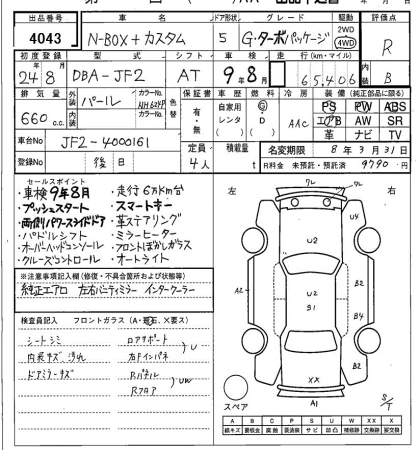 出品番号 車名 ドア形状 グレード 駆動 評価点
4043 N-BOX+カスタム 5 G・ターボパッケージ 2WD 4WD R
初度登録 型式 シフト 車検 走行(km・マイル) 内装
24年8月 DBA-JF2 AT 9年8月 65,406 B
排気量 外装色 カラーNo. 色替 保証書 車歴 燃料 冷房 装備(純正部品に限る)
660c.c. パール NH624P 有・無 自家用 レンタ G・D AAC PS PW ABS
エアB AW SR
革 ナビ TV
車台No JF2-4000161 定員 積載量 名変期限 8年3月31日
登録No 後日 4人 t R料金 未預託・預託済 9790円
セールスポイント
・車検9年8月 ・走行6万km台
・プッシュスタート ・スマートキー
・両側パワースライドドア ・革ステアリング
・パドルシフト ・ミラーヒーター
・オーバーヘッドコンソール ・フロントぼかしガラス
・クルーズコントロール ・オートライト
※注意事項記入欄(修復・不具合箇所および状態等)
純正エアロ 左右バニティミラー インタークーラー
検査員記入 フロントガラス(A・飛石・X要ス)
シートシミ ロアサポート
内装キズ汚れ 右Fインパネ U
ドアミラーキズ Rパネル
Rフロア UW
左 右
U4
U2
A2 U2 B2
S1 B4
B2
XX
A1
スペア S/T
A B C P S U W XX X
線キズ 要板金 腐蝕 要塗装 サビ 凹凸 補修跡 交換跡 要交換